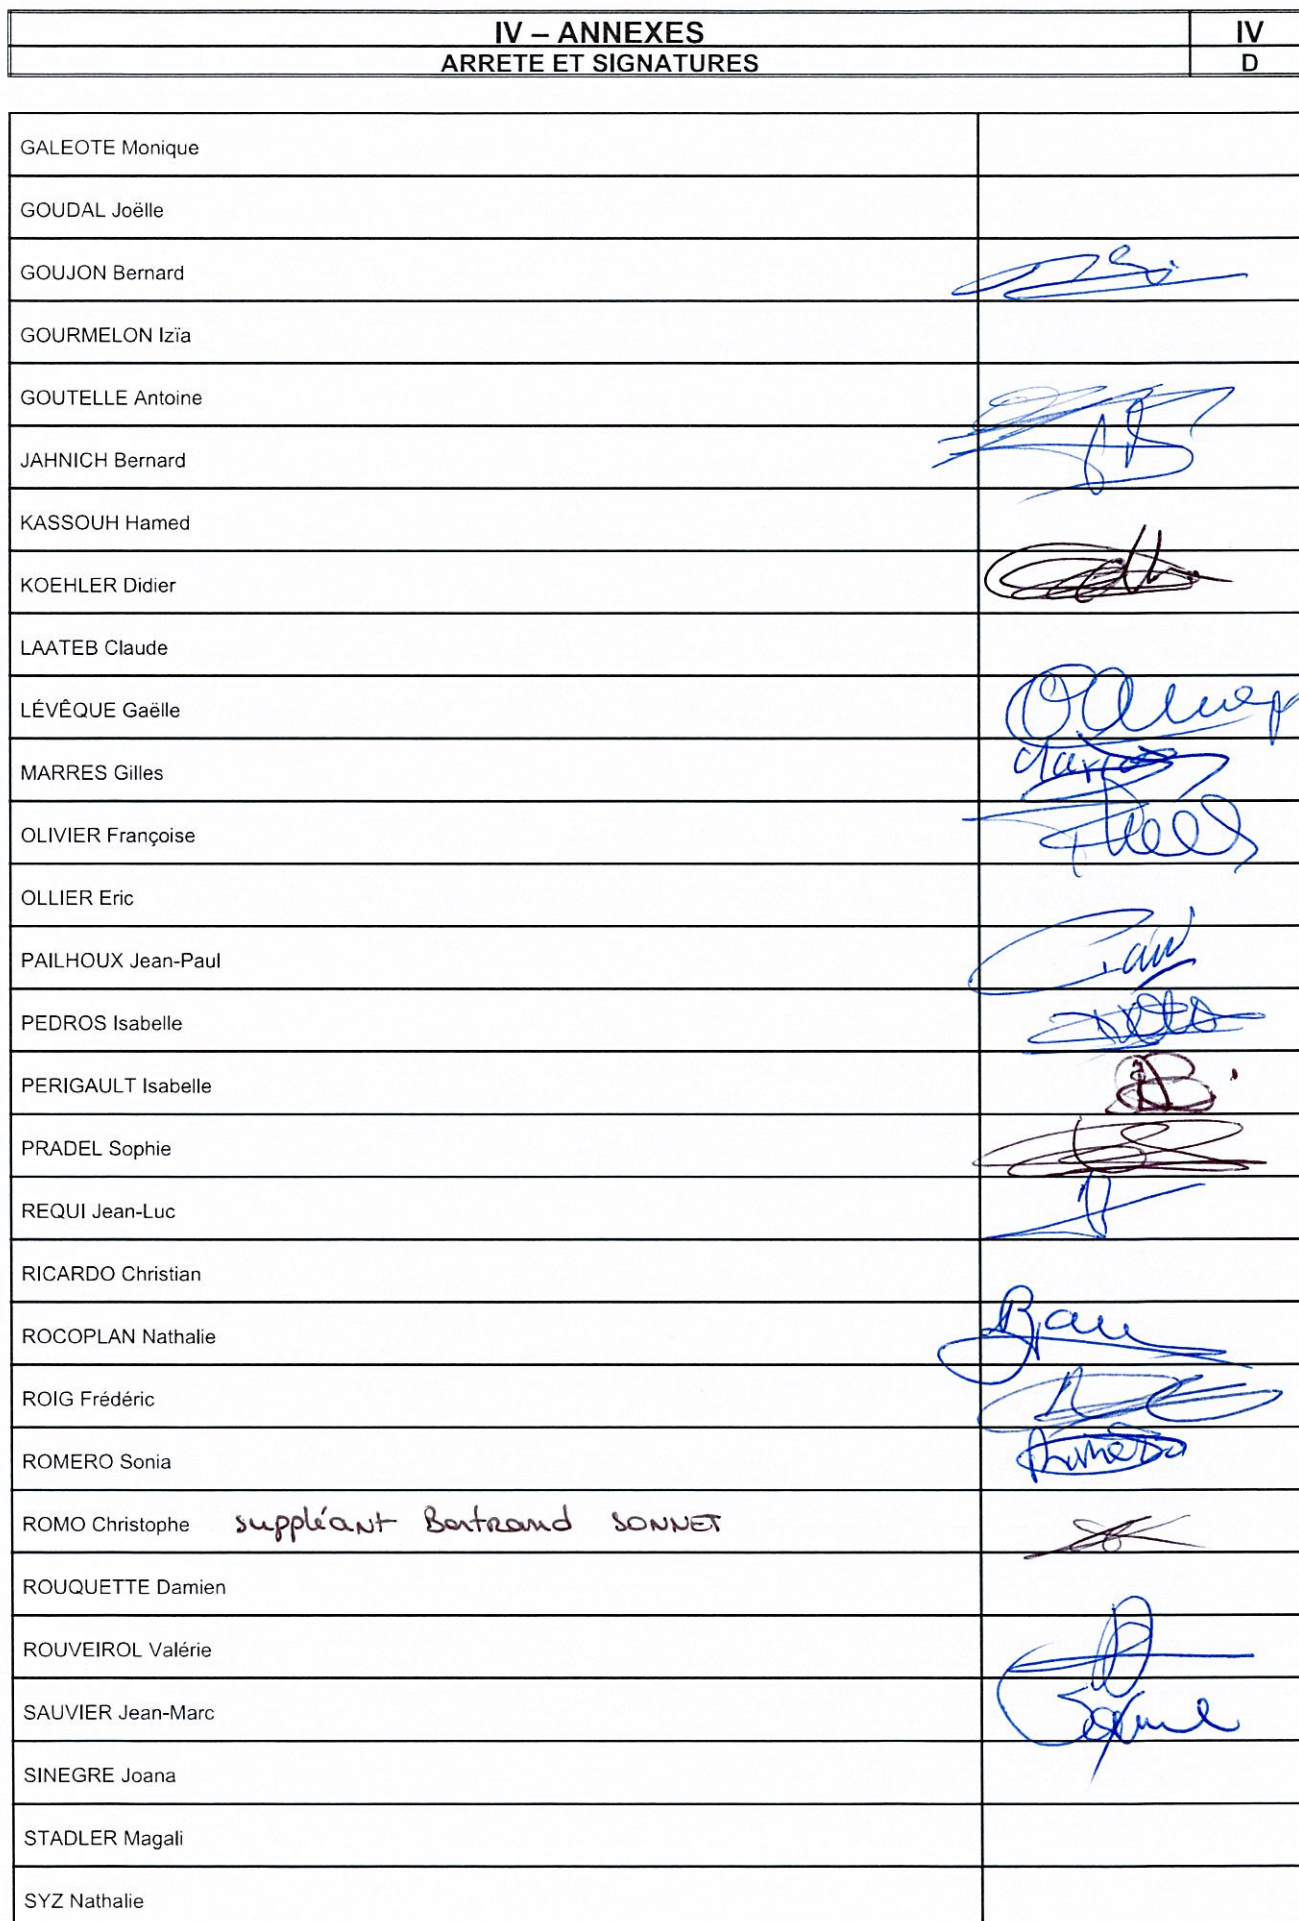 IV – ANNEXES IV
ARRETE ET SIGNATURES D
GALEOTE Monique
GOUDAL Joëlle
GOUJON Bernard
GOURMELON Izïa
GOUTELLE Antoine
JAHNICH Bernard
KASSOUH Hamed
KOEHLER Didier
LAATEB Claude
LÉVÊQUE Gaëlle
MARRES Gilles
OLIVIER Françoise
OLLIER Eric
PAILHOUX Jean-Paul
PEDROS Isabelle
PERIGAULT Isabelle
PRADEL Sophie
REQUI Jean-Luc
RICARDO Christian
ROCOPLAN Nathalie
ROIG Frédéric
ROMERO Sonia
ROMO Christophe suppléant Bertrand SONNET
ROUQUETTE Damien
ROUVEIROL Valérie
SAUVIER Jean-Marc
SINEGRE Joana
STADLER Magali
SYZ Nathalie